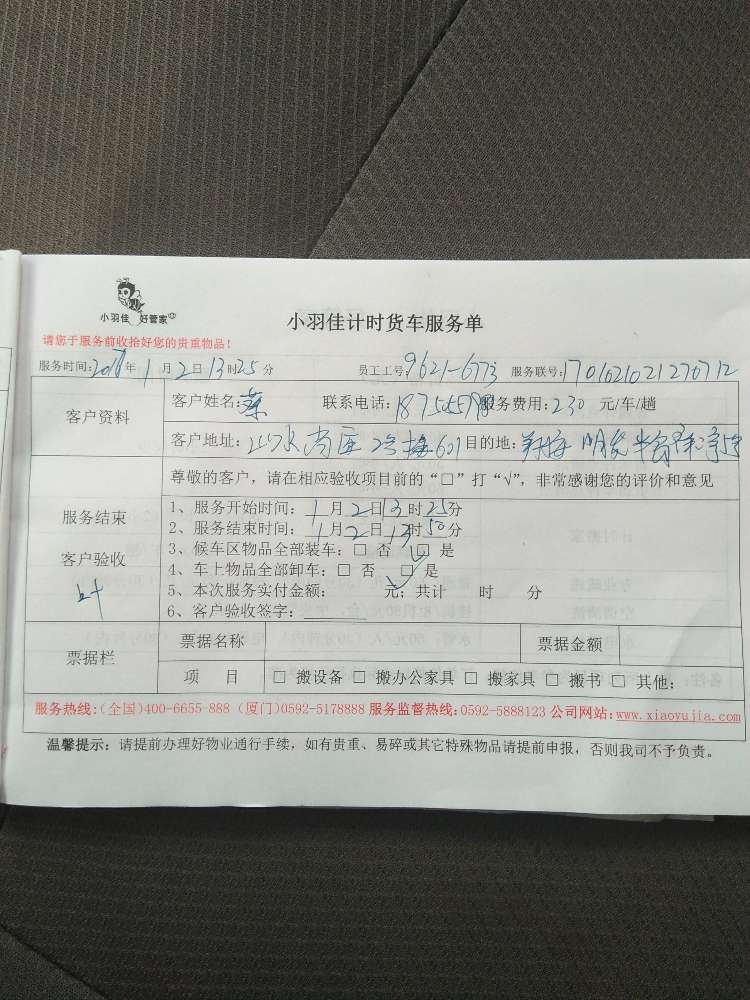 小羽佳 好管家
小羽佳计时货车服务单
请您于服务前收拾好您的贵重物品！
服务时间: 年1月2日13时25分 员工工号9621-6773 服务联号:1701021021270712
客户资料
客户姓名: 联系电话: 服务费用:230 元/车/趟
客户地址: 601目的地:
尊敬的客户，请在相应验收项目前的“□”打“√”，非常感谢您的评价和意见
服务结束
客户验收
1、服务开始时间：1月2日13时25分
2、服务结束时间：1月2日13时50分
3、候车区物品全部装车：□ 否 □ 是
4、车上物品全部卸车：□ 否 □ 是
5、本次服务实付金额： 元；共计 时 分
6、客户验收签字：
票据栏
票据名称 票据金额
项 目 □ 搬设备 □ 搬办公家具 □ 搬家具 □ 搬书 □ 其他：
服务热线:(全国)400-6655-888 (厦门)0592-5178888 服务监督热线:0592-5888123 公司网站:www.xiaoyujia.com
温馨提示：请提前办理好物业通行手续，如有贵重、易碎或其它特殊物品请提前申报，否则我司不予负责。